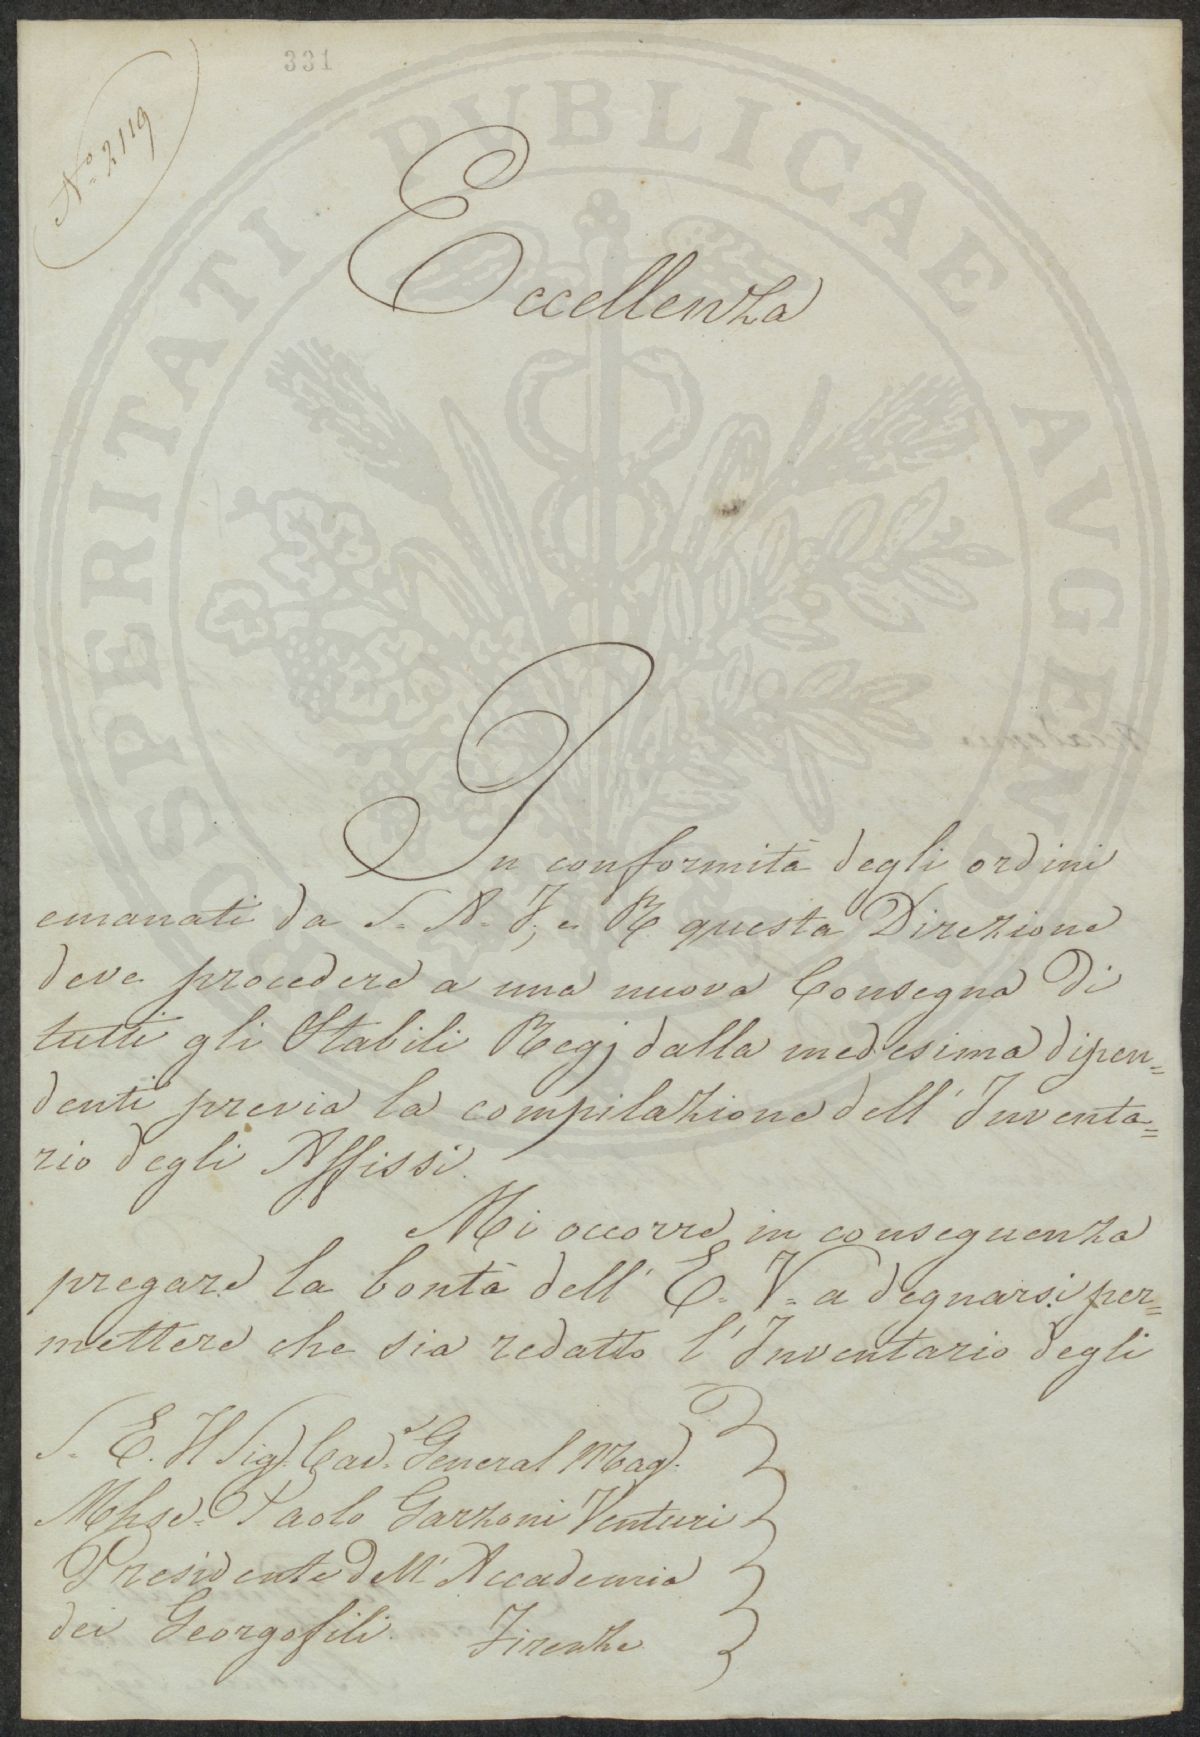 331
N.º 2119
Eccellenza
In conformità degli ordini
emanati da S. A. I. e R. questa Direzione
deve procedere a una nuova Consegna di
tutti gli Stabili Regj dalla medesima dipen=
denti previa la compilazione dell' Inventa=
rio degli Affissi.
Mi occorre in conseguenza
pregare la bontà dell' E. V. a degnarsi per=
mettere che sia redatto l' Inventario degli
S. E. Il Sig. Cav.e General Mag.
Mchse. Paolo Garzoni Venturi
Presidente dell' Accademia
dei Georgofili. Firenze
PROSPERITATI PUBLICAE AVGENDAE